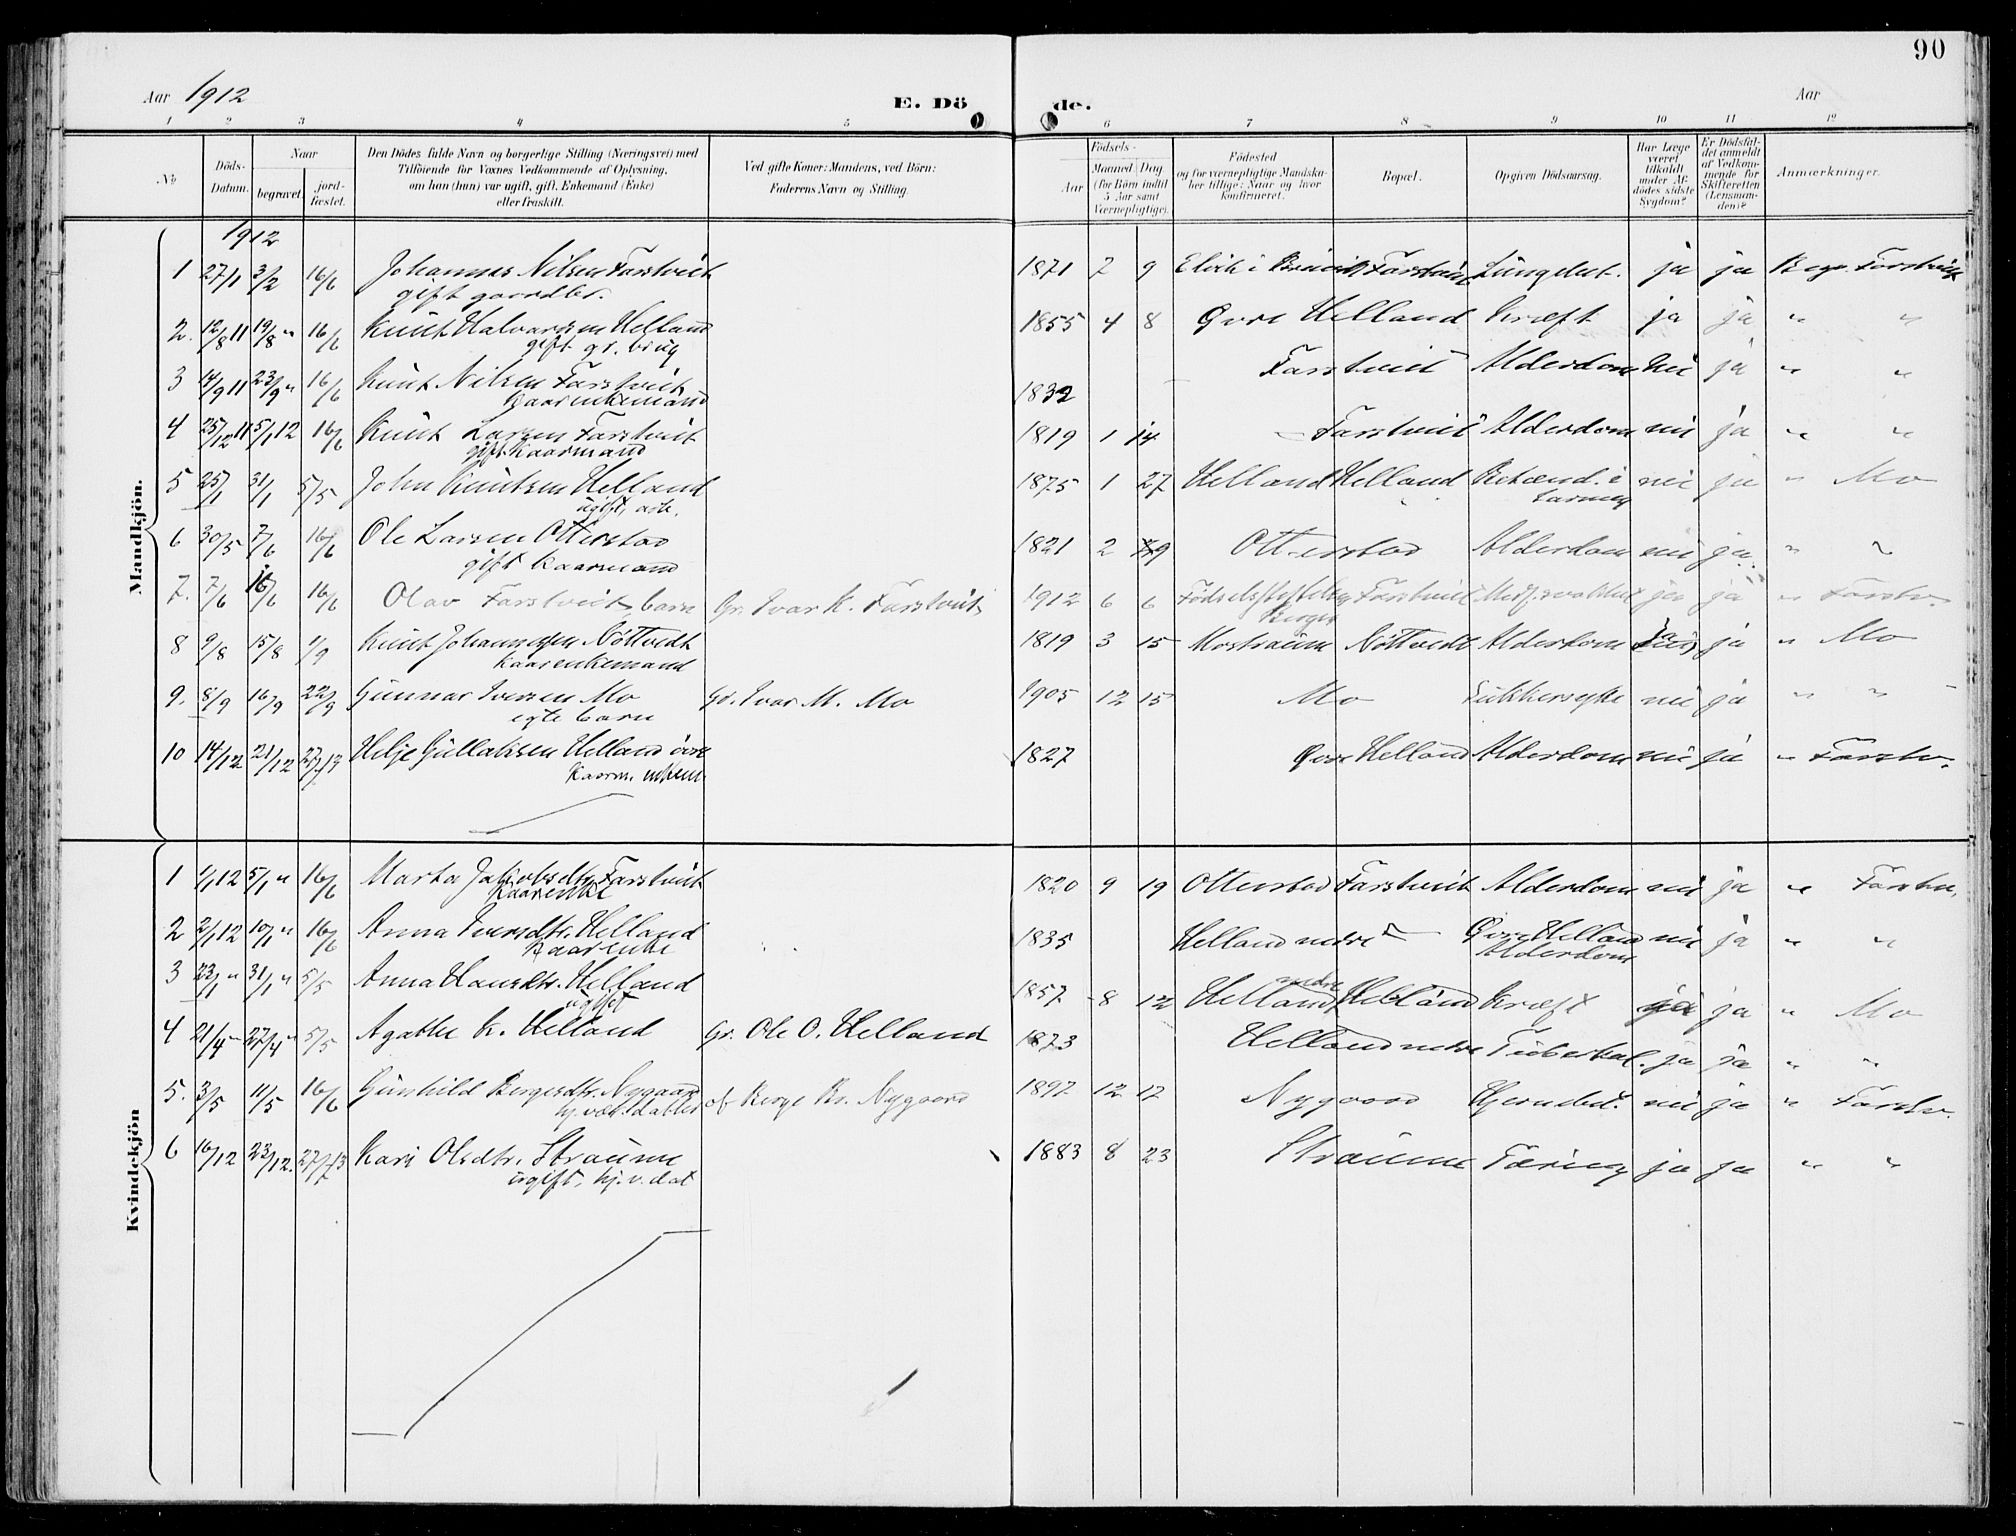 90
Aar 1912 E. Dö de. Aar
1 2 3 4 5 6 7 8 9 10 11 12
No Döds-Datum. Naar begravet. jord-fæstet. Den Dödes fulde Navn og borgerlige Stilling (Næringsvei) med Tilföiende for Voxnes Vedkommende af Oplysning, om han (hun) var ugift, gift, Enkemand (Enke) eller fraskilt. Ved gifte Koner: Mandens, ved Börn: Faderens Navn og Stilling. Födsels- Aar Maaned Dag (for Börn indtil 5 Aar samt Værnepligtige). Födested og for værnepligtige Mandskaber tillige: Naar og hvor konfirmeret. Bopæl. Opgiven Dödsaarsag. Har Læge været tilkaldt under Afdödes sidste Sygdom? Er Dödsfaldet anmeldt af Vedkommende for Skifteretten (Lensmanden)? Anmærkninger.
Mandkjön.
1912
1 27/1 3/2 16/6 Johannes Nilsen Farstveit 1871 7 9 Farstveit Lungebet. ja ja Begr. Farstveit
gift gaardbr.
2. 12/8 11 19/8 " 16/6 Knut Halvorsen Helland 1855 4 8 Øvre Helland Kræft ja ja " "
gift gr. brug
3 14/9 11 23/9 " 16/6 Knut Nilsen Farstveit 1832 Farstveit Alderdom nei ja " "
Kaarenkemand
4 25/12 11 5/1 12 16/6 Knut Larsen Farstveit 1819 1 14 Farstveit Alderdom nei ja " "
gift Kaarmand
5 25/1 31/1 5/5 John Knutsen Helland 1875 1 27 Helland Helland Betænd. i nei ja " Mo
ugift, arb. tarmen
6 30/5 7/6 16/6 Ole Larsen Otterstad 1821 2 9 Otterstad Alderdom nei ja " "
gift Kaarmand
7. 7/6 16/6 16/6 Olav Farstveit barn Gr. Ivar K. Farstveit 1912 6 6 Födselsstiftelsen Farstveit Medf. svakhet ja ja " Farstv.
Bergen
8 9/8 15/8 1/9 Knut Johannessen Nöttveit 1819 3 15 Mostraum Nöttveit Alderdom ja ja " Mo
Kaarenkemand
9. 8/9 16/9 22/9 Gunnar Iversen Mo Gr. Ivar M. Mo 1905 12 15 Mo Sukkersyke nei ja " "
egte barn
10 14/12 21/12 27/7 13 Helje Gullaksen Helland övre 1827 Øvre Helland Alderdom nei ja " Farstv.
Kaarm. enkem.
Kvindekjön
1 1/1 12 5/1 " 16/6 Marta Jakobsdtr. Farstveit 1820 9 19 Otterstad Farstveit Alderdom nei ja " Farstv.
Kaarenke
2 2/1 12 10/1 " 16/6 Anna Iversdtr. Helland 1835 Helland nedre Øvre Helland nei ja " "
Kaarenke Alderdom
3 23/1 " 31/1 " 5/5 Anna Hansdtr. Helland 1857 8 12 Helland nedre Helland Kræft ja ja " Mo
ugift
4 21/4 " 27/4 " 5/5 Agathe K. Helland Gr. Ole O. Helland 1873 Helland nedre Tuberkul. ja ja " "
5. 3/5 11/5 16/6 Gunhild Bergesdtr. Nygaard af Berge Br. Nygaard 1897 12 17 Nygaard Hjernebet. nei ja " Farstv.
hj. vær. datter
6 16/12 23/12. 27/7 13 Kari Olsdtr. Straume 1883 8 23 Straume Tæring ja ja " "
ugift, hj. v. dat